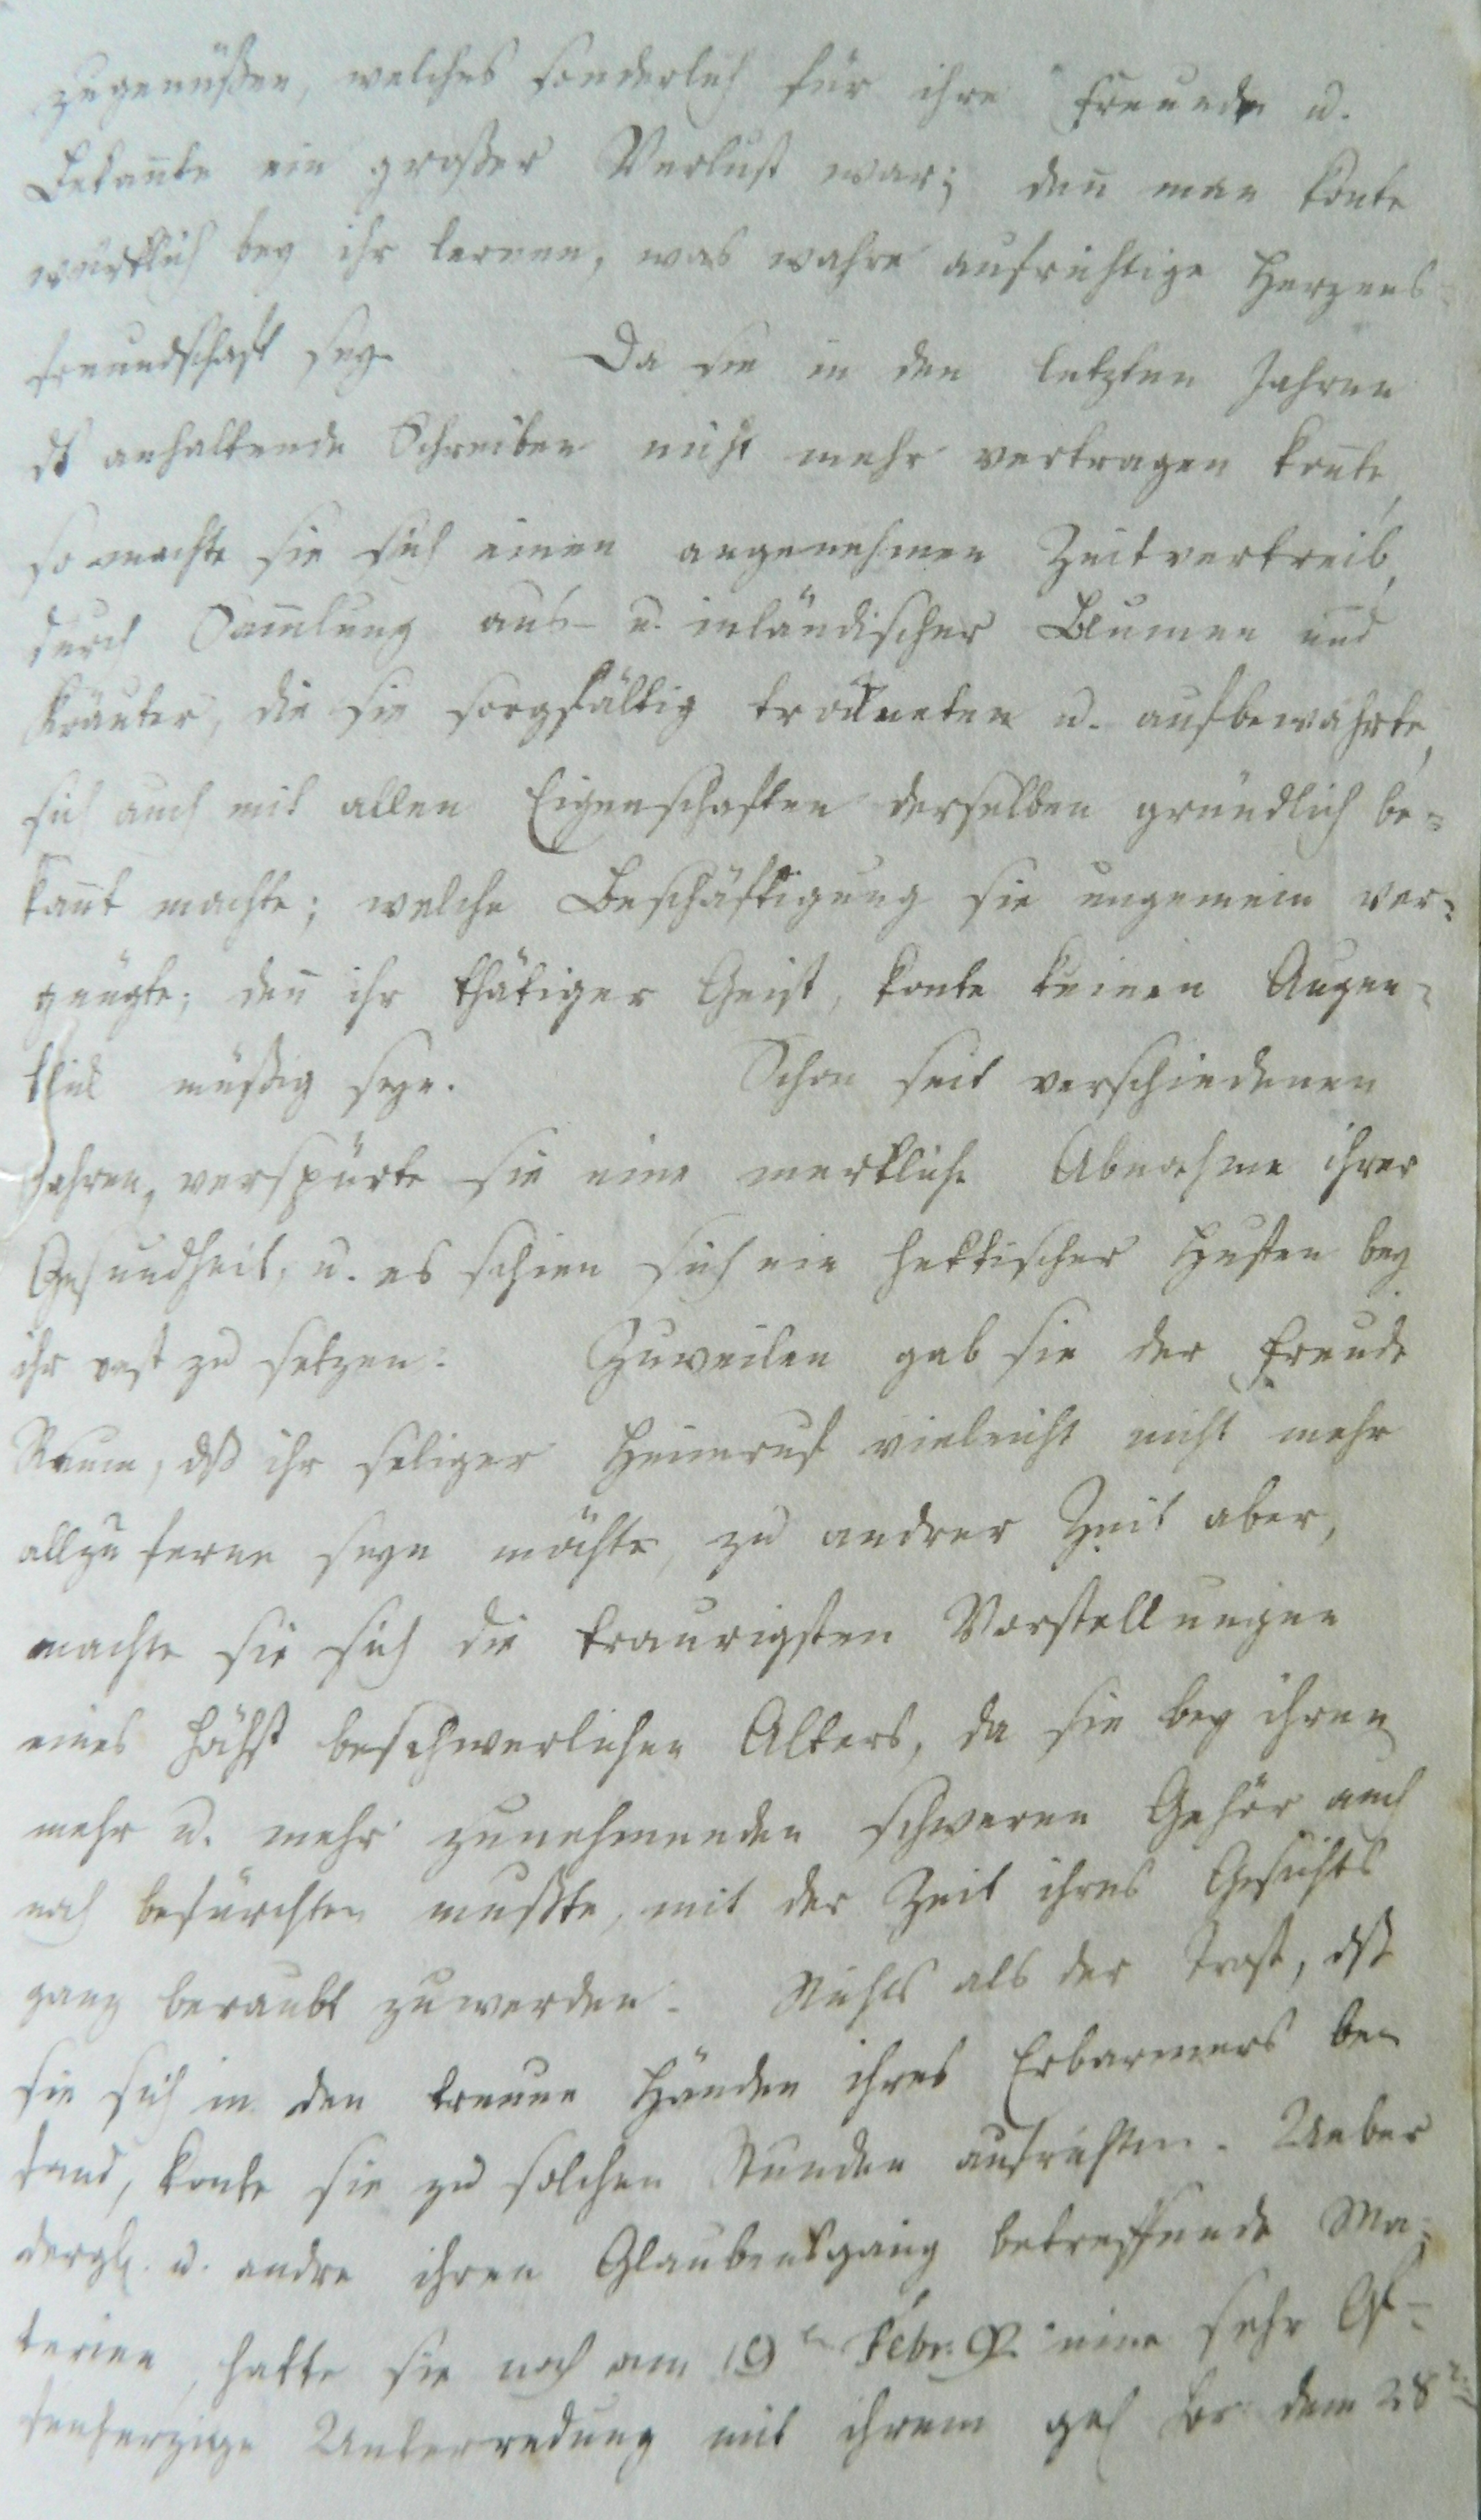 zugenüßen, welches sonderlich für ihre Freunde u.
Bekan̅te ein großer Verlust war; den̅ man konte
würklich bey ihr lernen, was wahre aufrichtige Herzens-
freundschaft sey. Da sie in den letzten Jahren
ds anhaltende Schreiben nicht mehr vertragen kon̅te,
so machte sie sich einen angenehmen Zeitvertreib,
durch Sam̅lung aus- u. inländischer Blumen und
Kräuter, die sie sorgfältig trockneten u. aufbewahrte,
sich auch mit allen Eigenschaften derselben gründlich be-
kan̅t machte; welche Beschäftigung sie ungemein ver-
gnügte; den̅ ihr thätiger Geist, konte keinen Augen-
blick müßig seyn. Schon seit verschiedenen
Jahren, verspürte sie eine merkliche Abnahme ihrer
Gesundheit, u. es schien sich ein hektischer Husten bey
ihr vest zu setzen. Zuweilen gab sie der Freude
Raum, dß ihr seliger Heimruf vieleicht nicht mehr
allzu ferne seyn möchte, zu andrer Zeit aber,
machte sie sich die traurigsten Vorstellungen
eines höchst beschwerlichen Alters, da sie bey ihren
mehr u. mehr zunehmenden schweren Gehör auch
noch befürchten mußte, mit der Zeit ihres Gesichts
ganz beraubt zuwerden. Nichts als der Trost, dß
sie sich in den treuen Händen ihres Erbarmers be-
fand, konte sie zu solchen Stunden aufrichten. Ueber
dergl. u. andre ihren Glaubensgang betreffende Ma-
terien, hatte sie noch am 19n Febr. 92. eine sehr of-
fenherzige Unterredung mit ihrem gel. Br. dem 28n